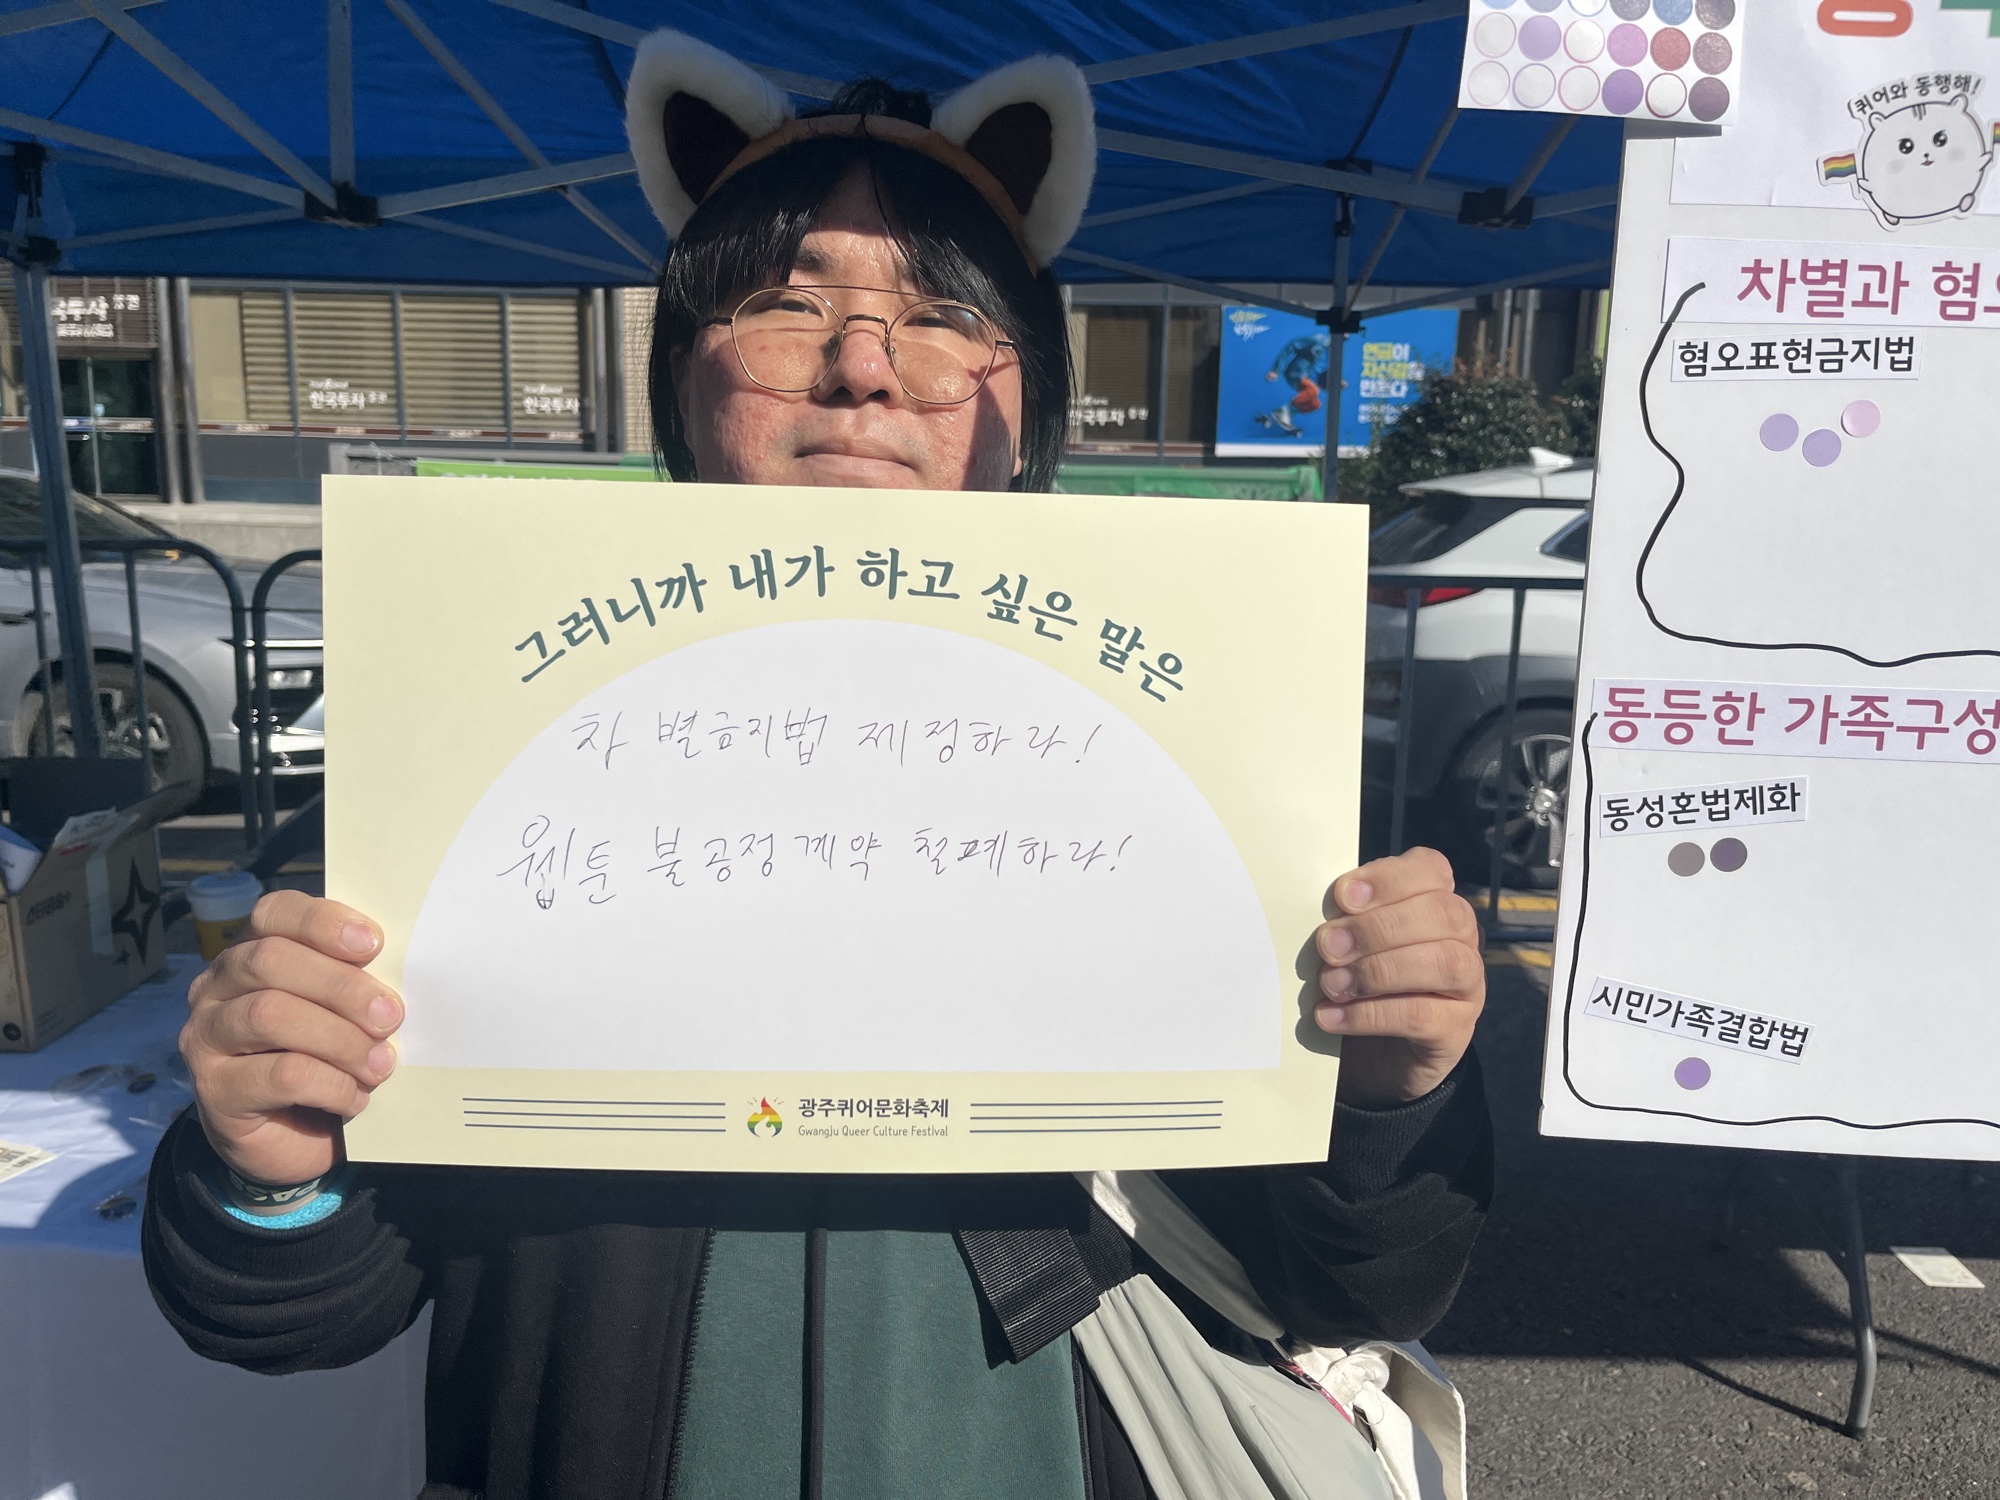 그러니까 내가 하고 싶은 말은
차별금지법 제정하라!
웹툰 불공정계약 철폐하라!
광주퀴어문화축제
Gwangju Queer Culture Festival
퀴어와 동행해!
차별과
혐오표현금지법
동등한 가족구성
동성혼법제화
시민가족결합법
한국투자증권
한국투자
한국투자증권
연금이
자신감을
만든다